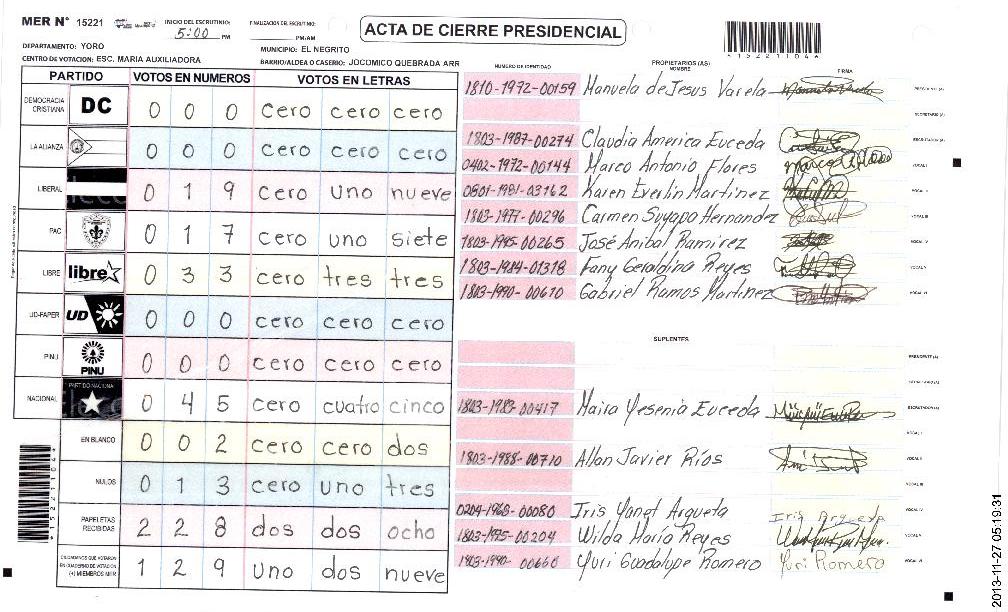 MER N° 15221
INICIO DEL ESCRUTINIO: 5:00 PM
FINALIZACIÓN DEL ESCRUTINIO: PM/AM
ACTA DE CIERRE PRESIDENCIAL
*152211044*
DEPARTAMENTO: YORO
MUNICIPIO: EL NEGRITO
CENTRO DE VOTACION: ESC. MARIA AUXILIADORA
BARRIO/ALDEA O CASERIO: JOCOMICO QUEBRADA ARR
PARTIDO VOTOS EN NUMEROS VOTOS EN LETRAS
DEMOCRACIA CRISTIANA DC 0 0 0 cero cero cero
LA ALIANZA 0 0 0 cero cero cero
LIBERAL 0 1 9 cero uno nueve
PAC 0 1 7 cero uno siete
LIBRE libre 0 3 3 cero tres tres
UD-FAPER UD 0 0 0 cero cero cero
PINU PINU 0 0 0 cero cero cero
NACIONAL PARTIDO NACIONAL 0 4 5 cero cuatro cinco
EN BLANCO 0 0 2 cero cero dos
NULOS 0 1 3 cero uno tres
PAPELETAS RECIBIDAS 2 2 8 dos dos ocho
CIUDADANOS QUE VOTARON EN CUADERNO DE VOTACIÓN (+) MIEMBROS MER 1 2 9 uno dos nueve
NUMERO DE IDENTIDAD PROPIETARIOS (AS) NOMBRE FIRMA
1810-1972-00159 Manuela de Jesus Varela PRESIDENTE (A)
SECRETARIO (A)
1803-1987-00274 Claudia America Euceda ESCRUTADOR (A)
0402-1972-00144 Marco Antonio Flores VOCAL I
0801-1981-03162 Karen Everlin Martinez VOCAL II
1803-1977-00296 Carmen Suyapa Hernandez VOCAL III
1803-1945-00265 José Anibal Ramirez VOCAL IV
1803-1984-01318 Fany Geraldina Reyes VOCAL V
1803-1990-00610 Gabriel Ramos Martinez VOCAL VI
SUPLENTES
PRESIDENTE (A)
SECRETARIO (A)
1803-1983-00417 Maira Yesenia Euceda ESCRUTADOR (A)
VOCAL I
1803-1988-00710 Allan Javier Ríos VOCAL II
VOCAL III
0204-1968-00080 Iris Yanet Argueta VOCAL IV
1803-1975-00204 Wilda María Reyes VOCAL V
1803-1990-00660 Yuri Guadalupe Romero Yuri Romero VOCAL VI
*152211044*
2013-11-27 05:19:31